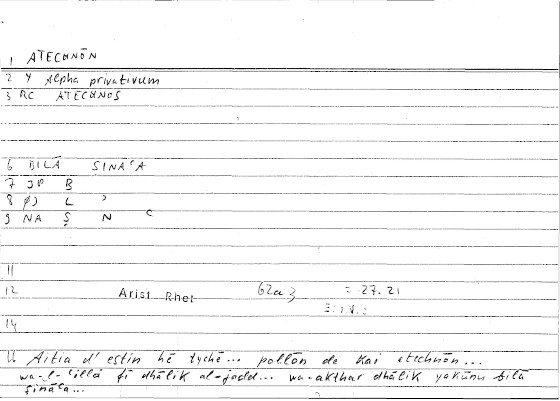 1 ATECHNŌN
2 Y Alpha privativum
3 RC ATECHNOS
6 BILĀ ṢINĀʿA
7 JP B
8 ØJ L ʾ
9 NA Ṣ N ʿ
11
12 Arist Rhet 62a3 = 27.21
14
Aitia d' estin hē tychē... pollōn de kai atechnōn...
wa-l-ʿilla fī dhālik al-jadd... wa-akthar dhālik yakūnu bilā
ṣināʿa...